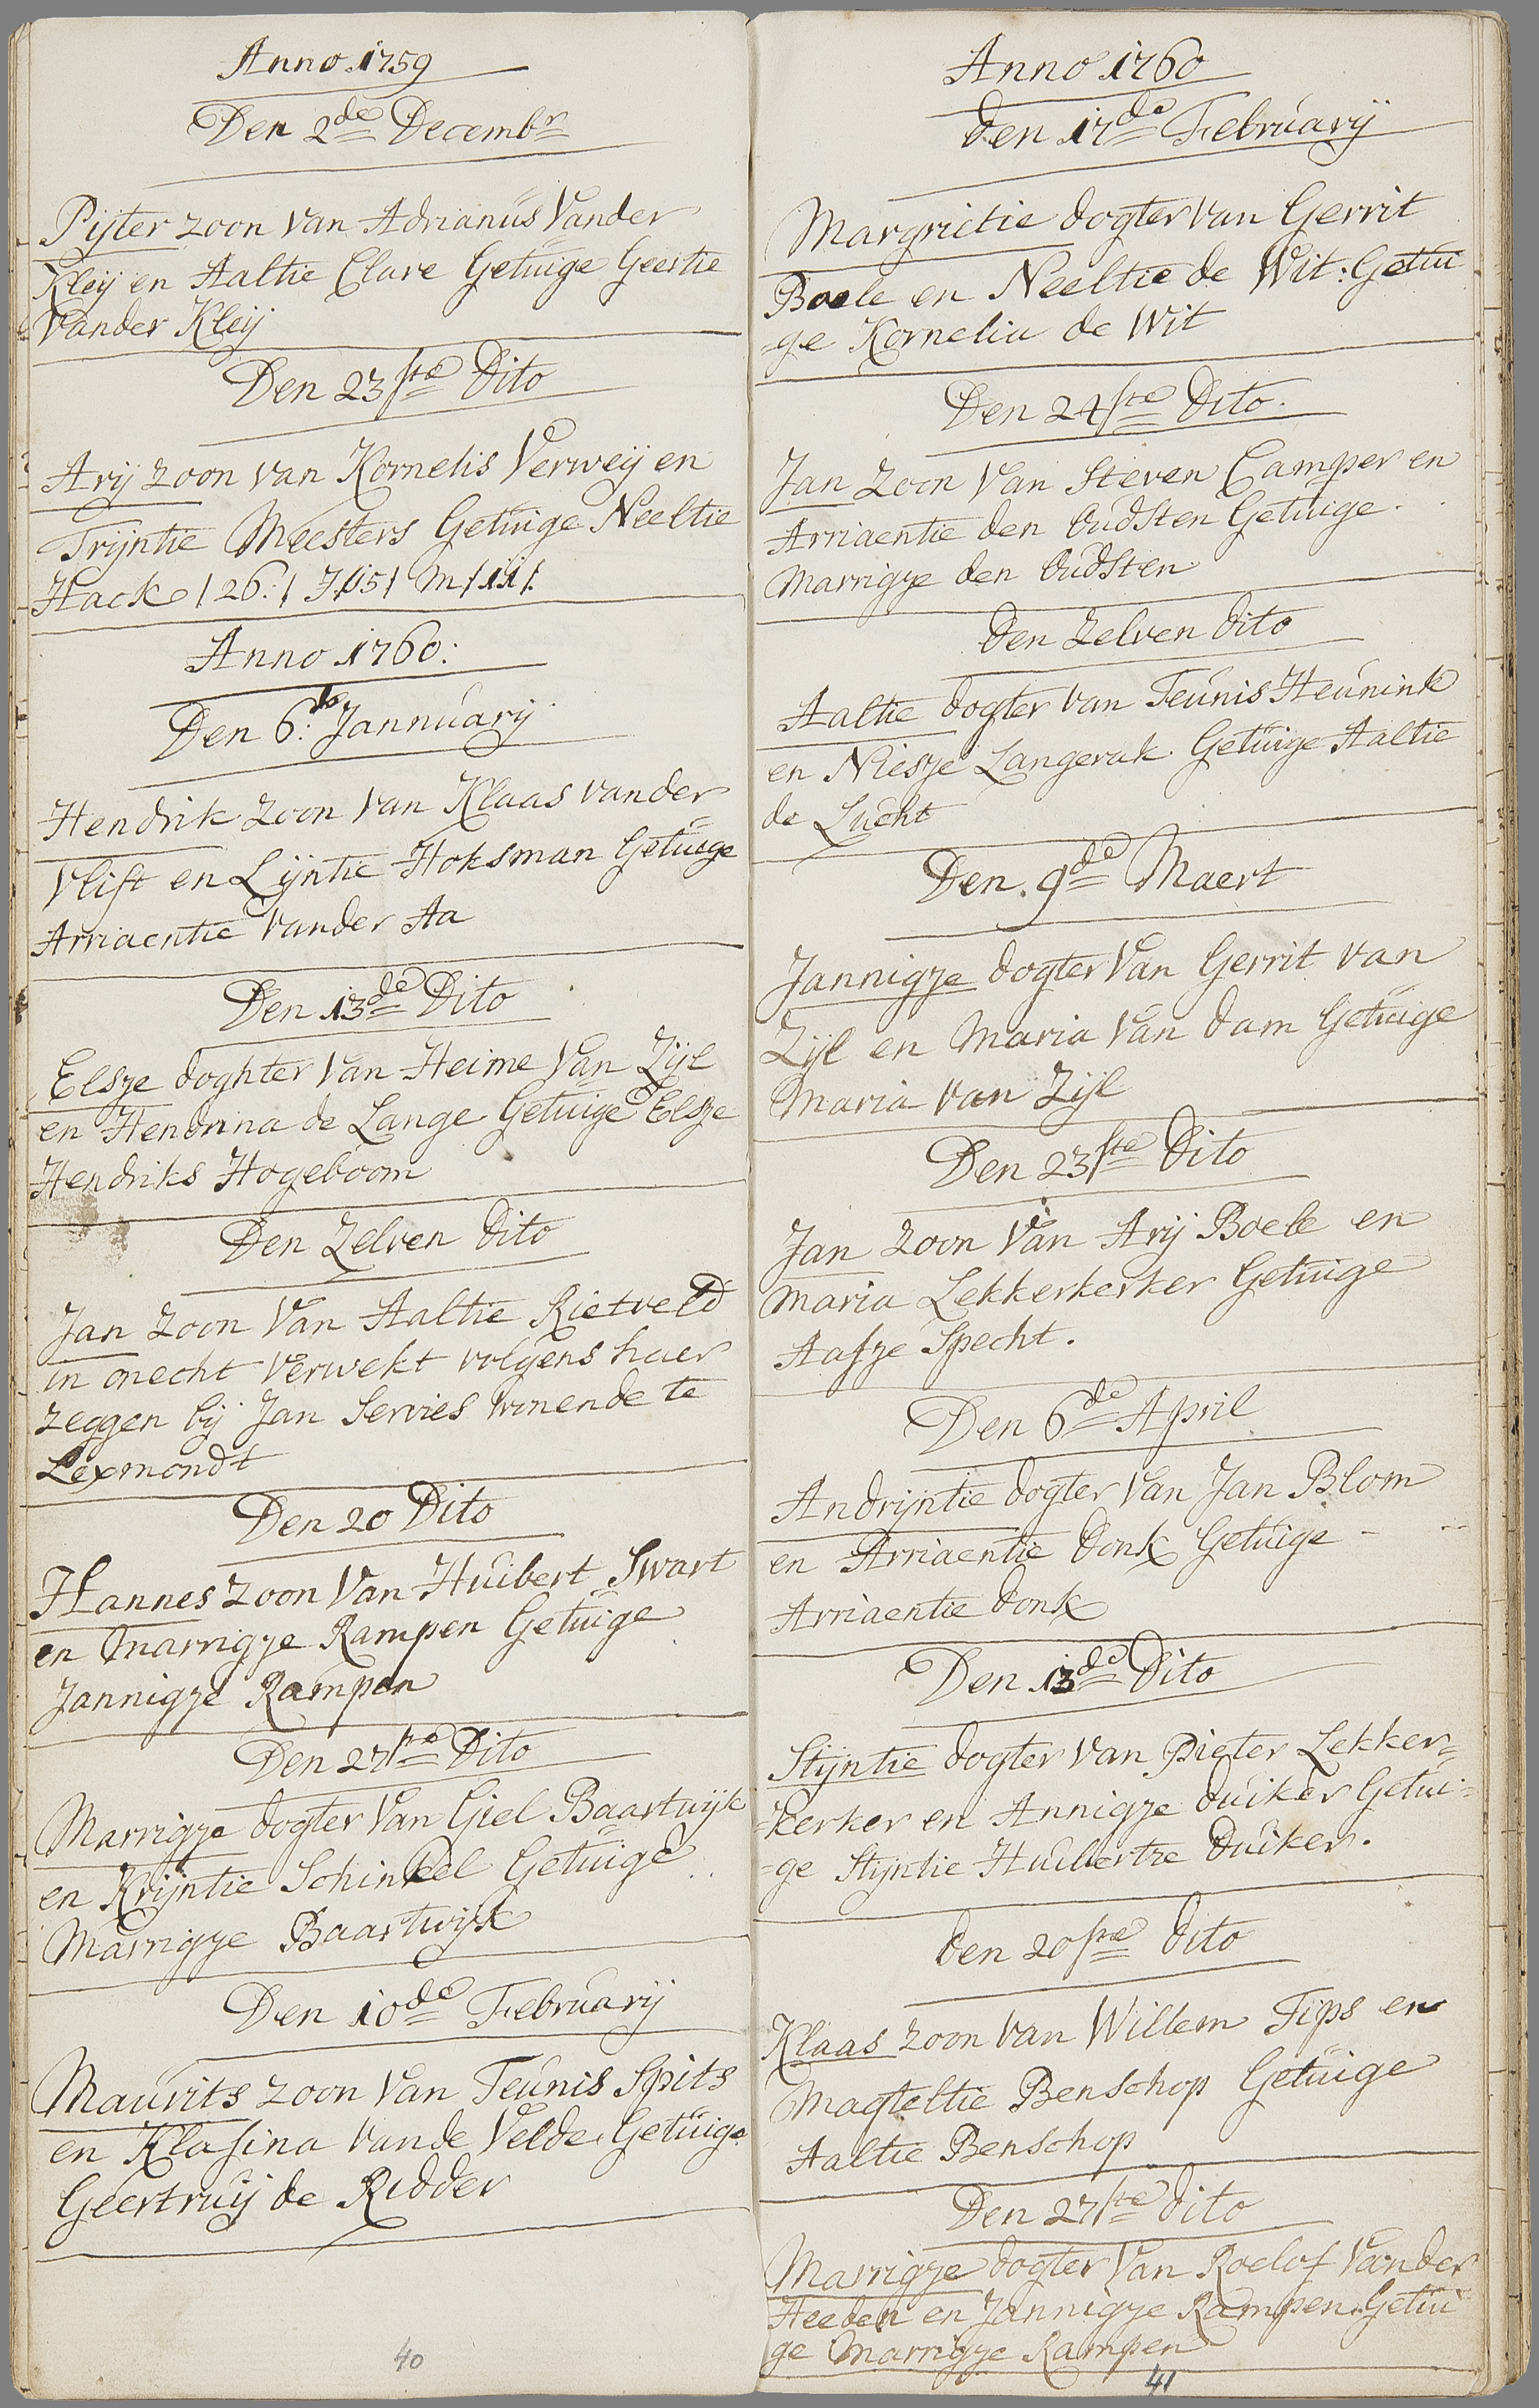 Anno 1759
Den 2de Decembr
Pijter zoon van Adrianus Vander
Kleij en Aaltie Clare Getuige Geertie
Vander Kleij
Den 23ste Dito
Arij zoon van Kornelis Verweij en
Trijntie Meesters Getuige Neeltie
Hack /26:/ J/15/ M/11/.
Anno 1760:
Den 6: Jannuarij
Hendrik zoon van Klaas vander
Vlist en Lijntie Hoksman Getuige
Arriaentie vander Aa
Den 13de Dito
Elsze doghter van Heime Van Zijl
en Hendrina de Lange Getuige Elsze
Hendriks Hogeboom
Den Zelven Dito
Jan zoon Van Aaltie Rietveld
in onecht verwekt volgens haer
zeggen bij Jan Servies winende te
Lexmondt
Den 20 Dito
Hannes zoon Van Huibert Swart
en Marrigze Rampen Getuige
Jannigze Rampen
Den 27ste Dito
Marrigze dogter Van Giel Baartwijk
en Krijntie Schinkel Getuige
Marrigze Baartwijk
Den 10de Februarij
Maurits zoon Van Teunis Spits
en Klasina vande Velde Getuige
Geertruij de Ridder
40
Anno 1760
den 17de Februarij
Margrietie dogter van Gerrit
Boele en Neeltie de Wit: Getui
-ge Kornelia de Wit
Den 24ste Dito.
Jan Zoon Van Steven Camper en
Arriaentie den Oudsten Getuige
Marrigze den Oudsten
den Zelven dito
Aaltie dogter van Teunis Heunink
en Niesze Langerak Getuige Aaltie
de Lucht
Den 9de Maert
Jannigze dogter Van Gerrit van
Zijl en Maria Van dam Getuige
Maria van Zijl
Den 23ste Dito
Jan zoon Van Arij Boele en
Maria Lekkerkerker Getuige
Aafze Specht.
Den 6de April
Andrijntie dogter Van Jan Blom
en Arriaentie Donk Getuige
Arriaentie Donk
Den 13de Dito
Stijntie dogter van Pieter Lekker=
-kerker en Annigze duiker Getui=
-ge Stijntie Huibertze Duiker.
den 20ste Dito
Klaas zoon van Willem Tips en
Magteltie Benschop Getuige
Aaltie Benschop
Den 27ste dito
Marrigze dogter Van Roelof Vander
Heeden en Jannigze Rampen Getui
ge Marrigze Rampen
41